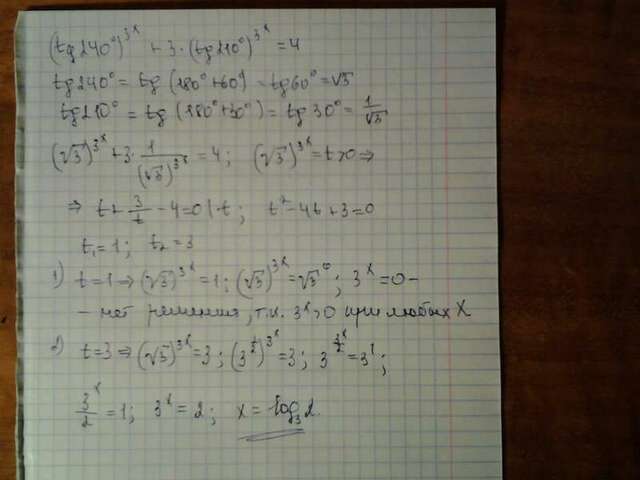 (tg240°)^3^x + 3·(tg210°)^3^x = 4
tg240° = tg(180°+60°) = tg60° = √3
tg210° = tg(180°+30°) = tg30° = 1/√3
(√3)^3^x + 3·1/(√3)^3^x = 4; (√3)^3^x = t>0 ⇒
⇒ t + 3/t - 4 = 0 |·t; t² - 4t + 3 = 0
t₁ = 1; t₂ = 3
1) t = 1 ⇒ (√3)^3^x = 1; (√3)^3^x = √3^0; 3^x = 0 -
- нет решения, т.к. 3^x>0 при любых X
2) t = 3 ⇒ (√3)^3^x = 3; (3^½)^3^x = 3; 3^(3^x/2) = 3^1;
3^x/2 = 1; 3^x = 2; x = log₃2.